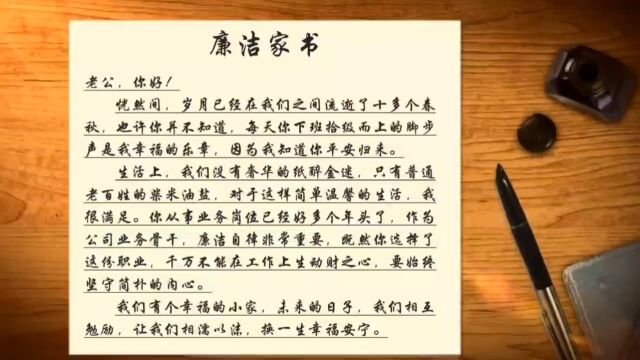 廉洁家书
老公，你好！
恍然间，岁月已经在我们之间流逝了十多个春
秋，也许你并不知道，每天你下班拾级而上的脚步
声是我幸福的乐章，因为我知道你平安归来。
生活上，我们没有奢华的纸醉金迷，只有普通
老百姓的柴米油盐，对于这样简单温馨的生活，我
很满足。你从事业务岗位已经好多个年头了，作为
公司业务骨干，廉洁自律非常重要，既然你选择了
这份职业，千万不能在工作上生动财之心，要始终
坚守简朴的内心。
我们有个幸福的小家，未来的日子，我们相互
勉励，让我们相濡以沫，换一生幸福安宁。